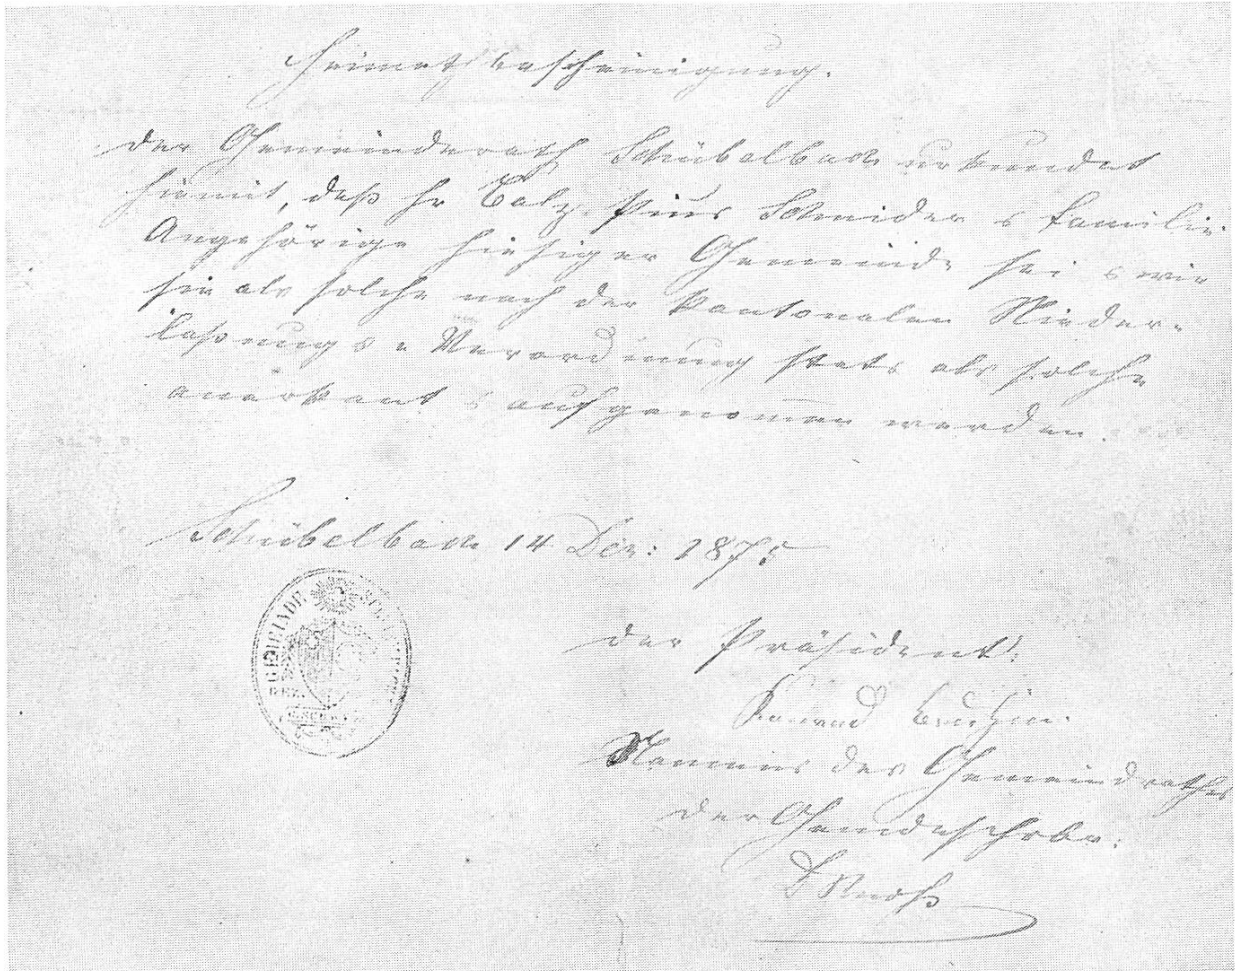 Heimathsbescheinigung.
Der Gemeinderath Schübelbach urkundet
hiemit, daß Hr Balz. Pius Schnider & Familie
Angehörige hiesiger Gemeinde sei & wir
sie als solche nach der kantonalen Nieder-
laßungs-Verordnung stets als solche
anerkant & aufgenommen werden.
Schübelbach 14 Dez: 187
GEMEINDE
Der Präsident:
Konrad
Namens des Gemeindrathes
der Gemdeschrbr: